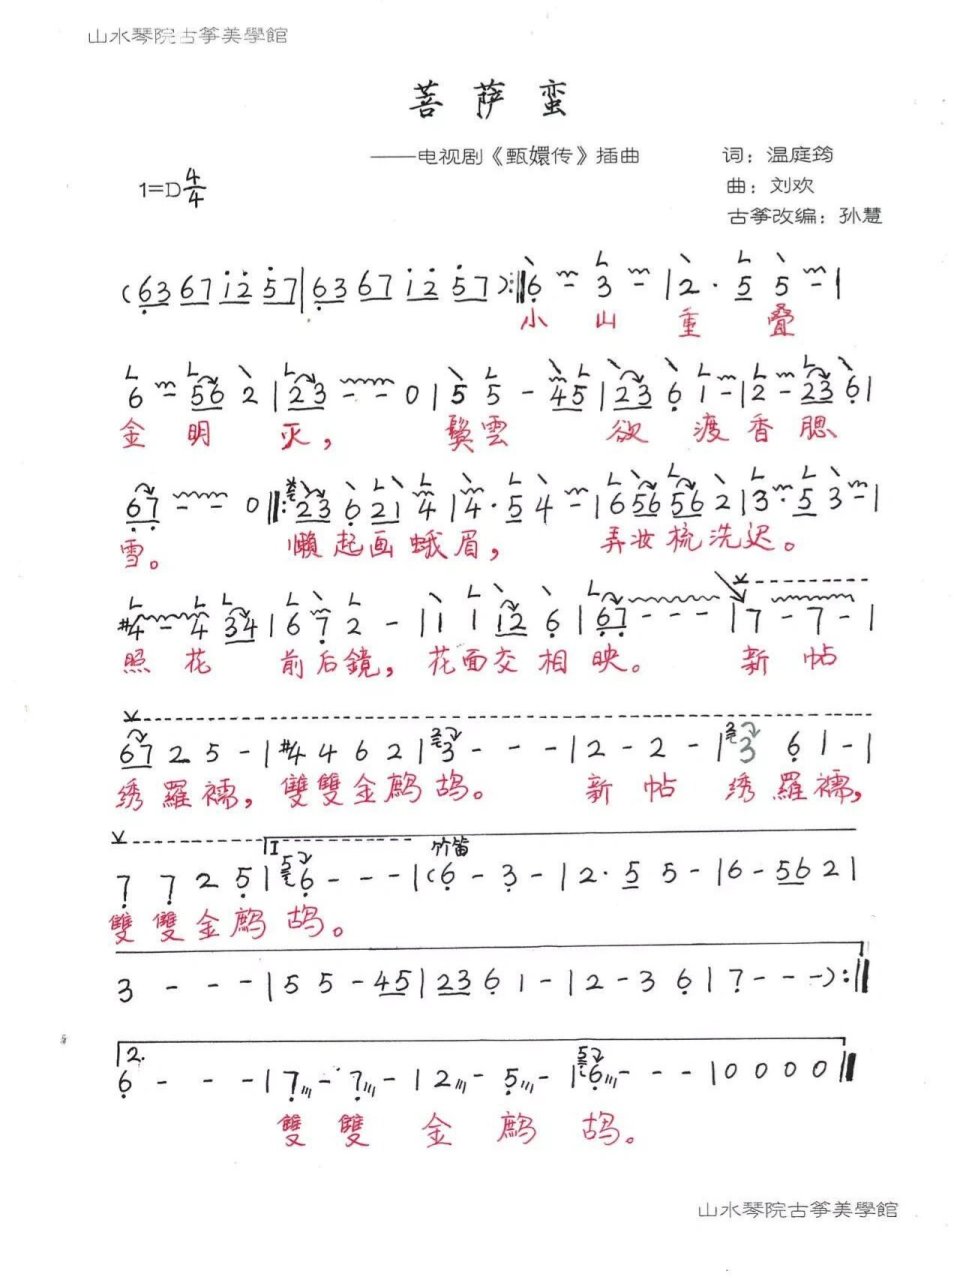 山水琴院古筝美學館
菩萨蛮
——电视剧《甄嬛传》插曲 词：温庭筠
1=D 4/4 曲：刘欢
古筝改编：孙慧
(63 67 12 57 | 63 67 12 57 ):‖: 6 - 3 - | 2 · 5 5 - |
小 山 重 叠
6 - 56 2 | 23 - - 0 | 5 5 - 45 | 23 6 1 - | 2 - 23 6 |
金 明 灭， 鬓雲 欲 渡 香 腮
67 - - 0 ‖: 23 6 21 4 | 4 · 5 4 - | 6 56 56 2 | 3 · 5 3 - |
雪。 懒起画蛾眉， 弄妆梳洗迟。
#4 - 4 34 | 6 7 2 - | 1 1 12 6 | 67 - - - | 7 - 7 - |
照 花 前后鏡，花面交相映。 新 帖
67 2 5 - | #4 4 6 2 | 3 - - - | 2 - 2 - | 3 6 1 - |
绣羅襦，雙雙金鹧鸪。 新 帖 绣羅襦，
I 竹笛
7 7 2 5 | 6 - - - | (6 - 3 - | 2 · 5 5 - | 6 - 56 2 |
雙雙金鹧鸪。
3 - - - | 5 5 - 45 | 23 6 1 - | 2 - 3 6 | 7 - - - ):‖
2.
6 - - - | 7 - 7 - | 2 - 5 - | 6 - - - | 0 0 0 0 ‖
雙 雙 金 鹧 鸪。
山水琴院古筝美學館